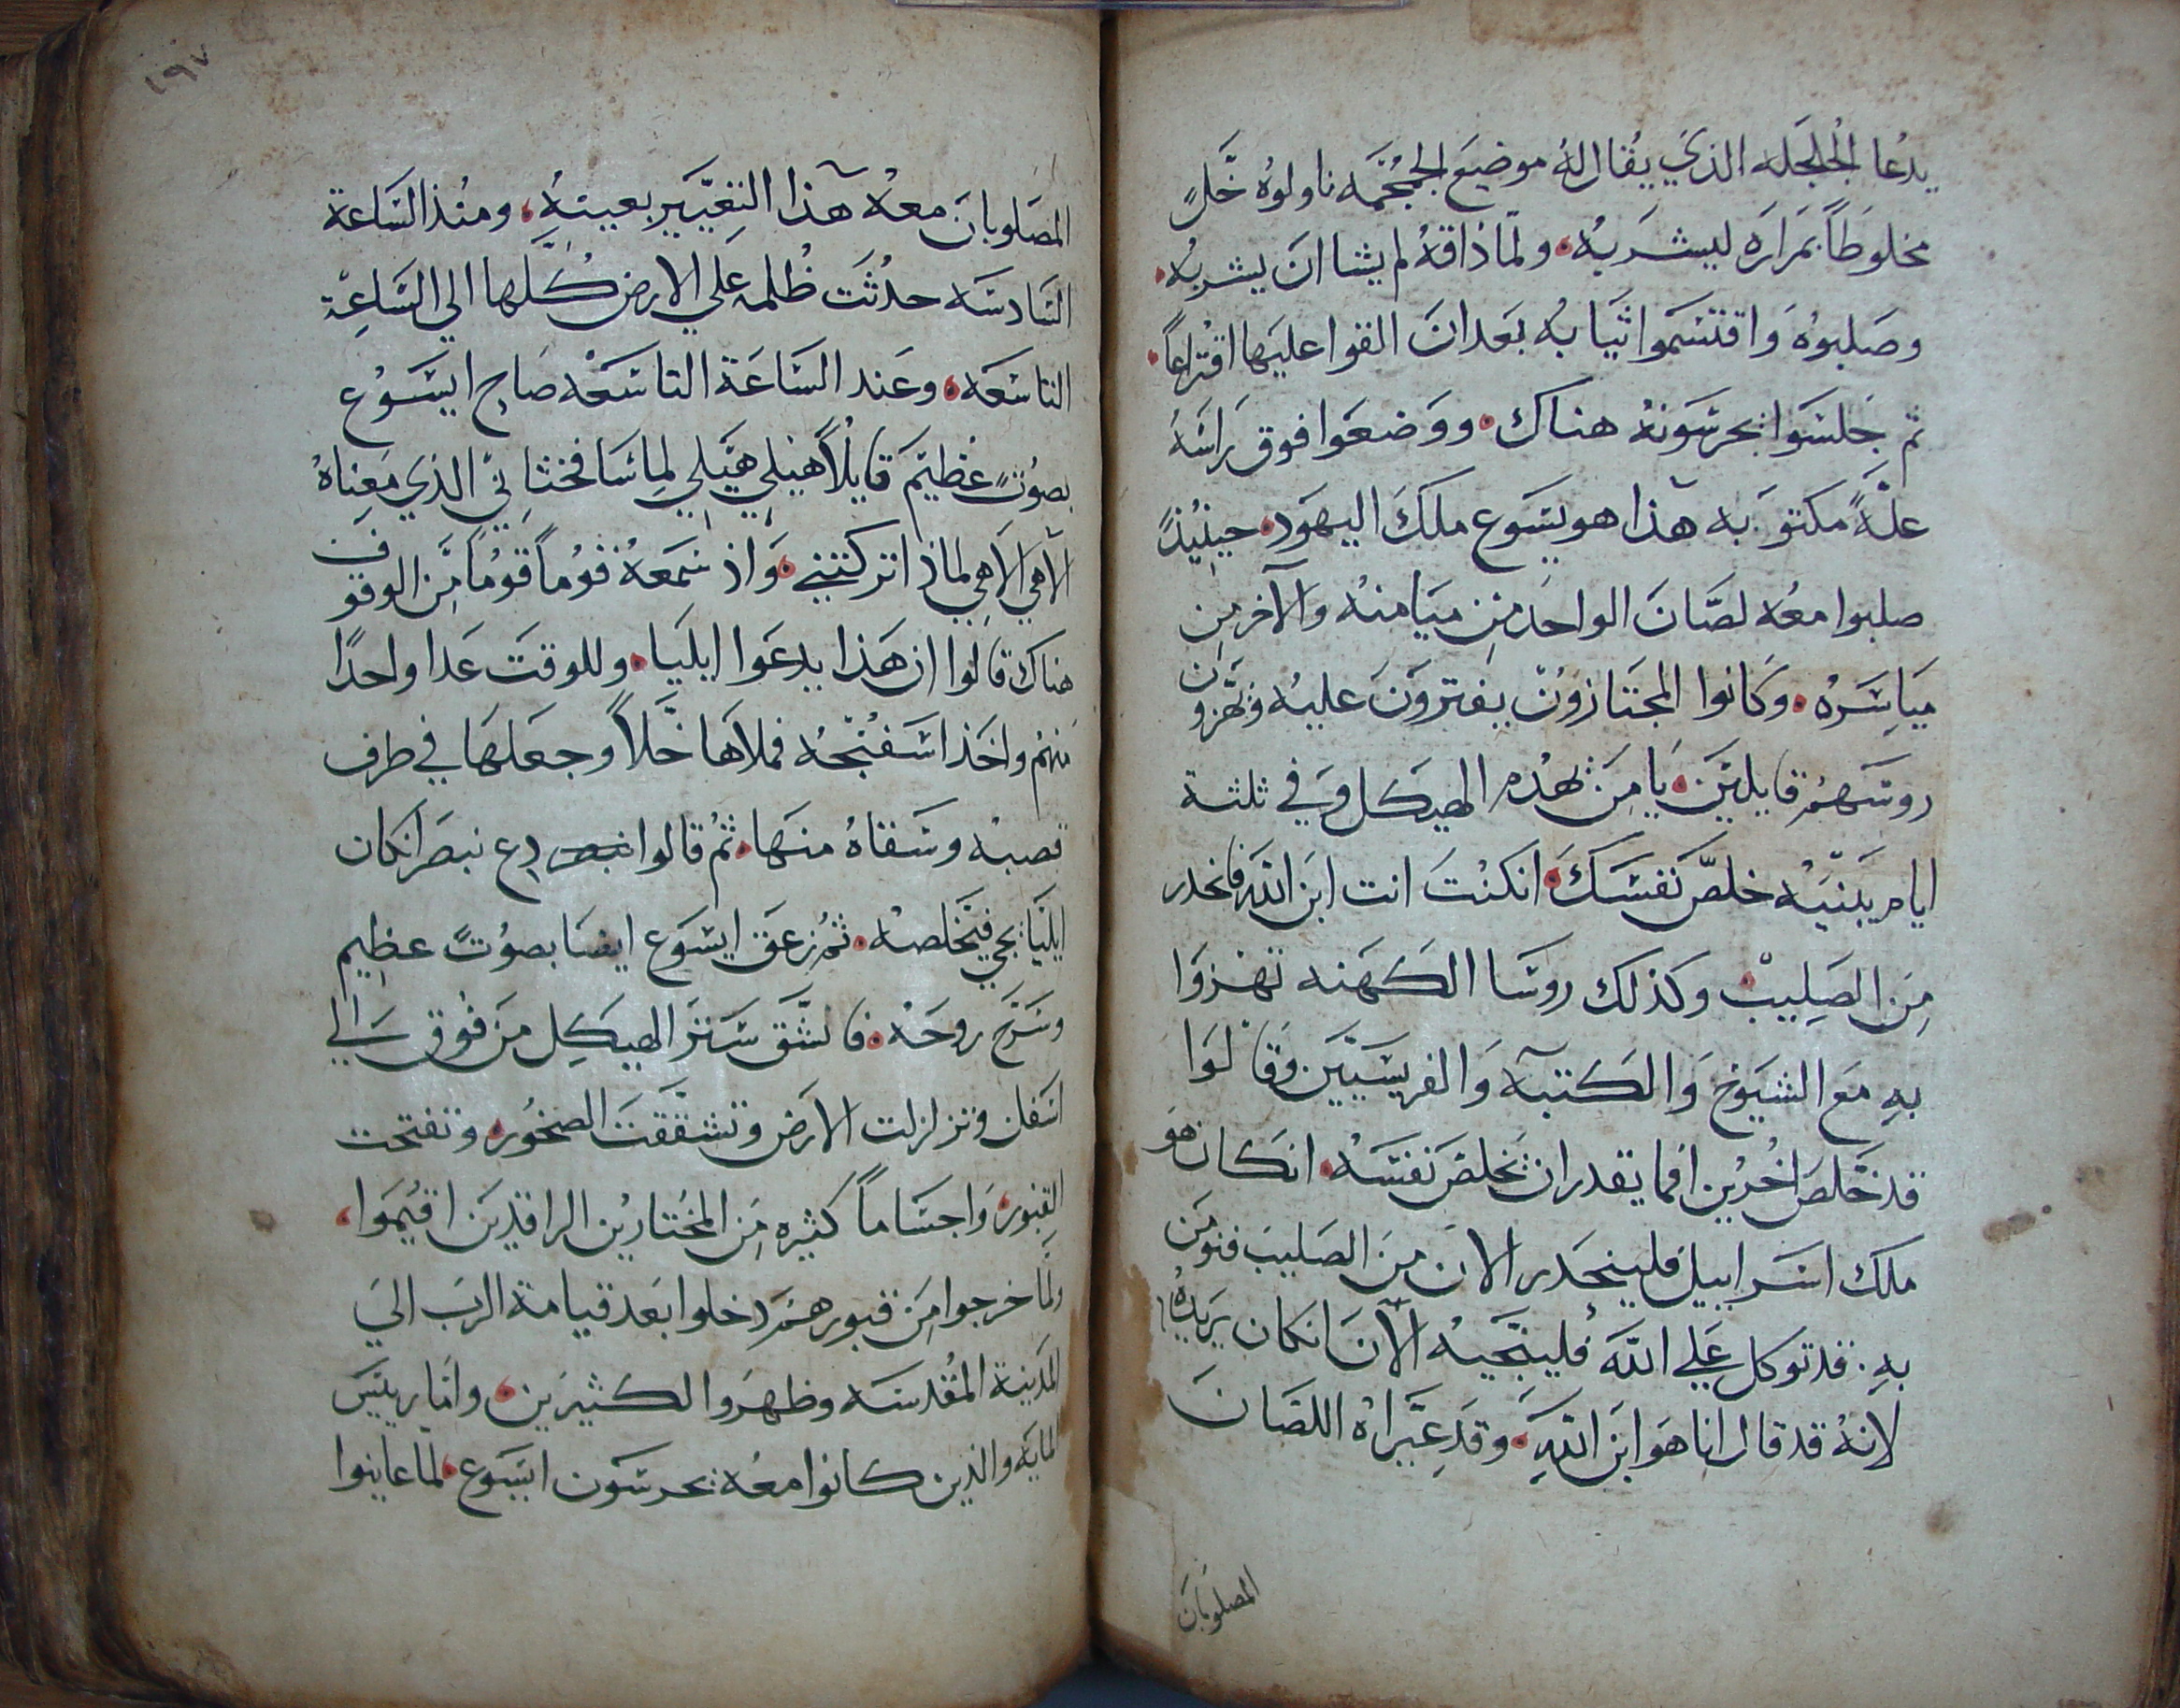 يدعا الجلجله الذي يقال له موضع الجمجمه ناولوه خلٍ
مخلوطاً بمراره ليشربه، ولما ذاقه لم يشا ان يشربه،
وصلبوه واقتسموا ثيابه بعد ان القوا عليها اقتراعاً،
ثم جلسوا يحرسونه هناك، ووضعوا فوق راسه
علةً مكتوبه هذا هو يسوع ملك اليهود، حينيذٍ
صلبوا معه لصان الواحد من ميامنه والآخر من
مياسره، وكانوا المجتازون يفترون عليه ويهزون
روسهم قايلين، يا من يهدم الهيكل وفي ثلثة
ايام يبنيه خلص نفسك، انكنت انت ابن الله فانحدر
من الصليب، وكذلك روسا الكهنه تهزوا
به مع الشيوخ والكتبه والفريسيين وقالوا
قد خلص اخرين افما يقدر ان يخلص نفسه، انكان هو
ملك اسراييل فلينحدر الان من الصليب فنومن
به. قد توكل علي الله فلينجيه الآن انكان يريده
لانه قد قال انا هو ابن الله، وقد عيراه اللصان
المصلوبان
١٩٧
المصلوبان معه هذا التعيير بعينه، ومنذ الساعة
السادسه حدثت ظلمه علي الارض كلها الي الساعة
التاسعه، وعند الساعة التاسعه صاح ايسوع
بصوتٍ عظيم قايلاً هيلي هيلي لماسا فختاني الذي معناه
الاهي الاهي لماذا تركتني، واذ سمعه قوماً قوماً من الوقوف
هناك قالوا ان هذا يدعوا ايليا، وللوقت عدا واحداً
منهم واخذ اسفنجه فملاها خلاً وجعلها في طرف
قصبه وسقاه منها، ثم قالوا دع نبصر انكان
ايليا يجي فيخلصه، ثم زعق ايسوع ايضا بصوتٍ عظيم
وسرح روحه، فانشق ستر الهيكل من فوق الي
اسفل وتزلزلت الارض وتشققت الصخور، وتفتحت
القبور، واجساماً كثيره من المختارين الراقدين اقيموا،
ولما خرجوا من قبورهم دخلوا بعد قيامة الرب الي
المدينة المقدسه وظهروا لكثيرين، واما رييس
المايه والذين كانوا معه يحرسون ايسوع، لما عاينوا